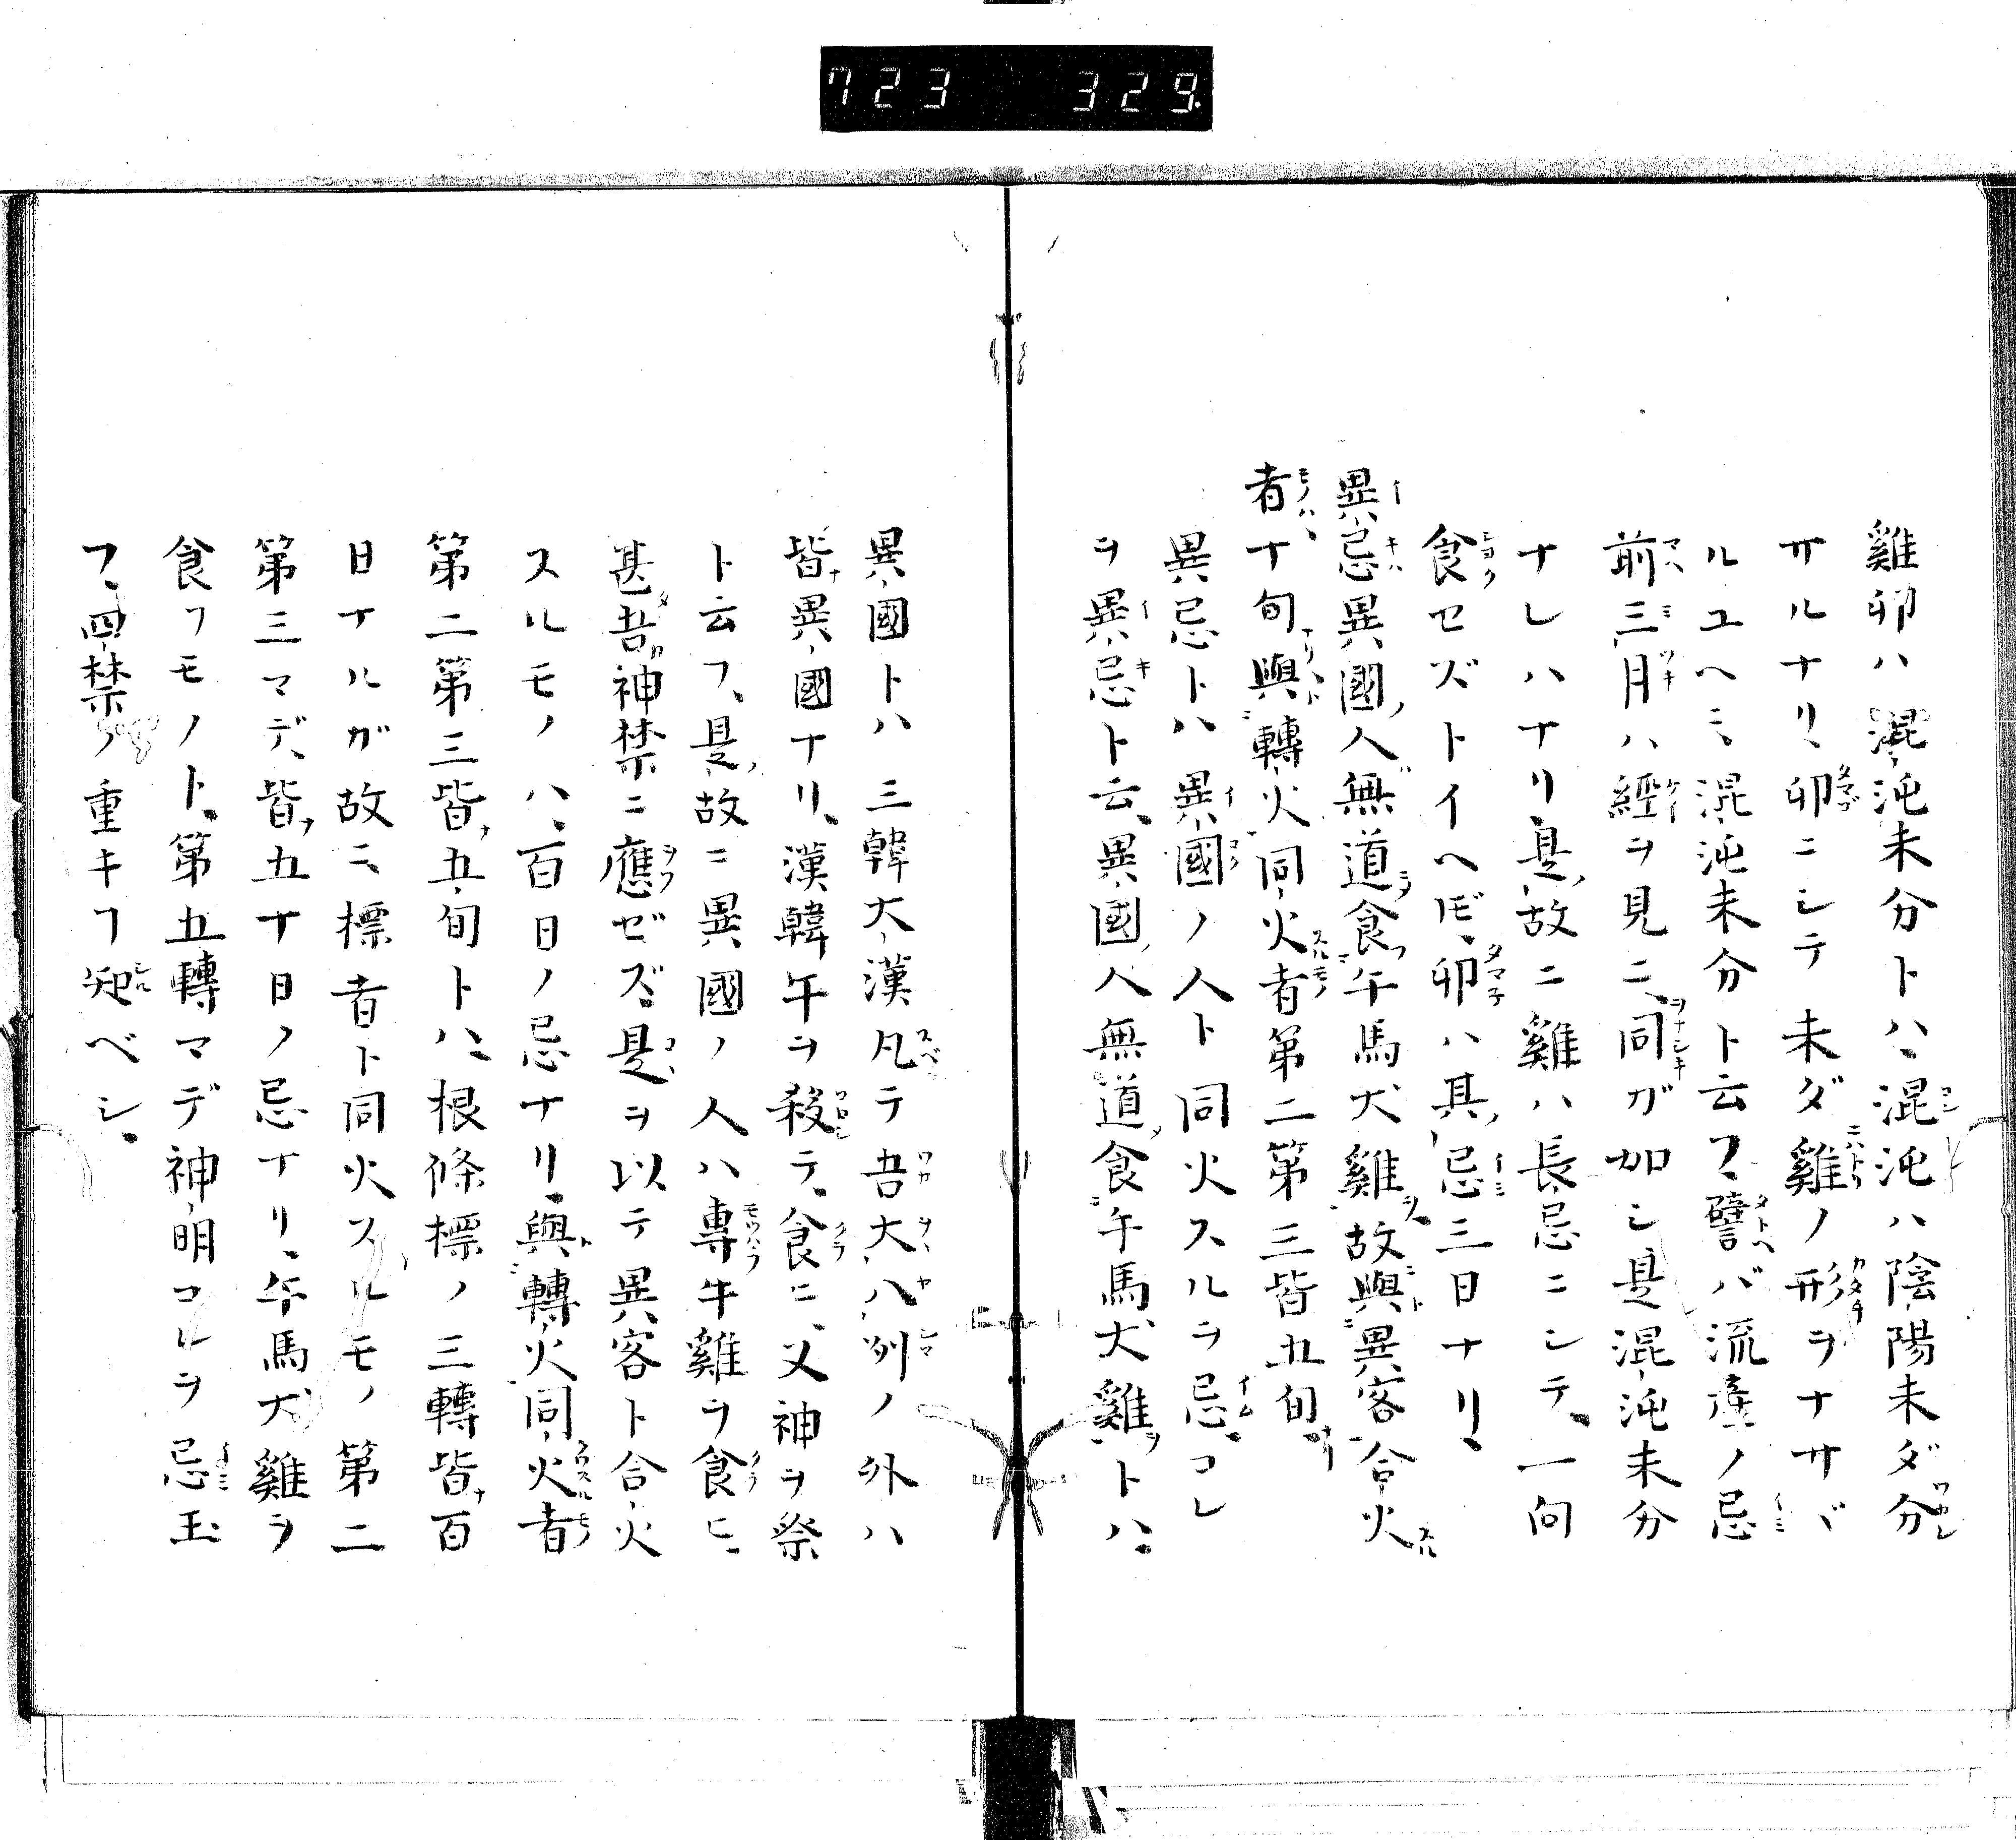 723 329.
雞卵ハ混沌未分トハ、混沌ハ陰陽未ダ分
サルナリ、卵ニシテ未ダ雞ノ形ヲナサバ
ルユヘニ、混沌未分ト云フ、譬バ流産ノ忌
前三月ハ經ヲ見ニ、同ガ如シ是混沌未分
ナレハナリ、是故ニ雞ハ長忌ニシテ、一向
食セズトイヘ𪜈、卵ハ其忌三日ナリ、
異忌異國人無道食午馬犬雞故與異客合火
者十旬與轉火同火者第二第三皆五旬
異忌トハ異國ノ人ト同火スルヲ忌、コレ
ヲ異忌ト云、異國人無道食午馬犬雞トハ、
異國トハ三韓大漢凡テ吾大八洲ノ外ハ
皆異國ナリ、漢韓午ヲ殺テ、食ニ、又神ヲ祭
ト云フ、是故ニ異國ノ人ハ專牛雞ヲ食ヒ、
甚吾神禁ニ應ゼズ、是ヲ以テ異客ト合火
スルモノハ、百日ノ忌ナリ、與轉火同火者
第二第三皆五旬トハ、根條標ノ三轉皆百
日ナルガ故ニ、標者ト同火スルモノ、第二
第三マデ、皆五十日ノ忌ナリ、午馬犬雞ヲ
食フモノト、第五轉マデ神明コレヲ忌玉
フ、四禁ノ重キヿ知ベシ、